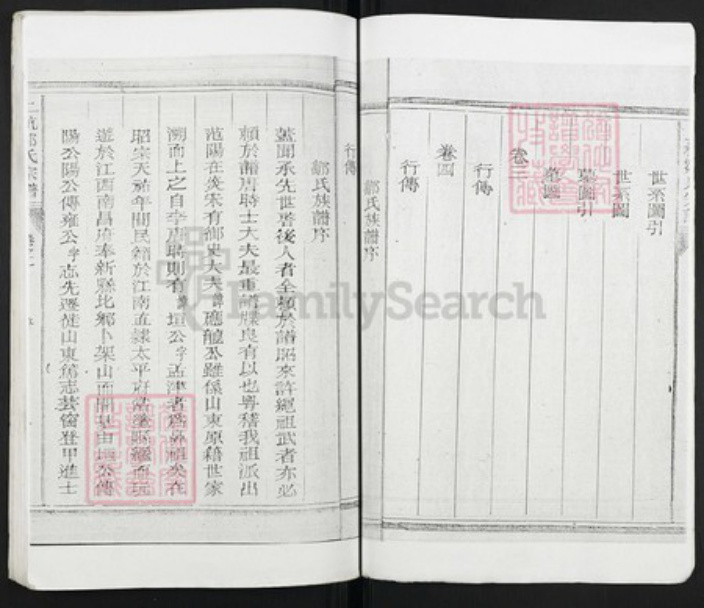 世系圖引
世系圖
墓圖引
墓圖
卷三
行傳
卷四
行傳
鄒氏族譜序
行傳
鄒氏族譜序
蓋聞承先世啓後人者全頼於譜昭來許繩祖武者亦必
頼於譜唐時士大夫最重譜牒良有以也粵稽我祖派出
范陽在炎宋有御史大夫諱應龍公雖係山東原籍世家
溯而上之自李唐時則有諱垣公字孟津者爲鼻祖矣在
昭宗天祐年間民籍於江南直隸太平府
遊於江西南昌府奉新縣北鄉卜架山而開基由
陽公陽公傳雍公字志先遷徙山東篤志芸窗登甲進士
氏宗譜
FamilySearch